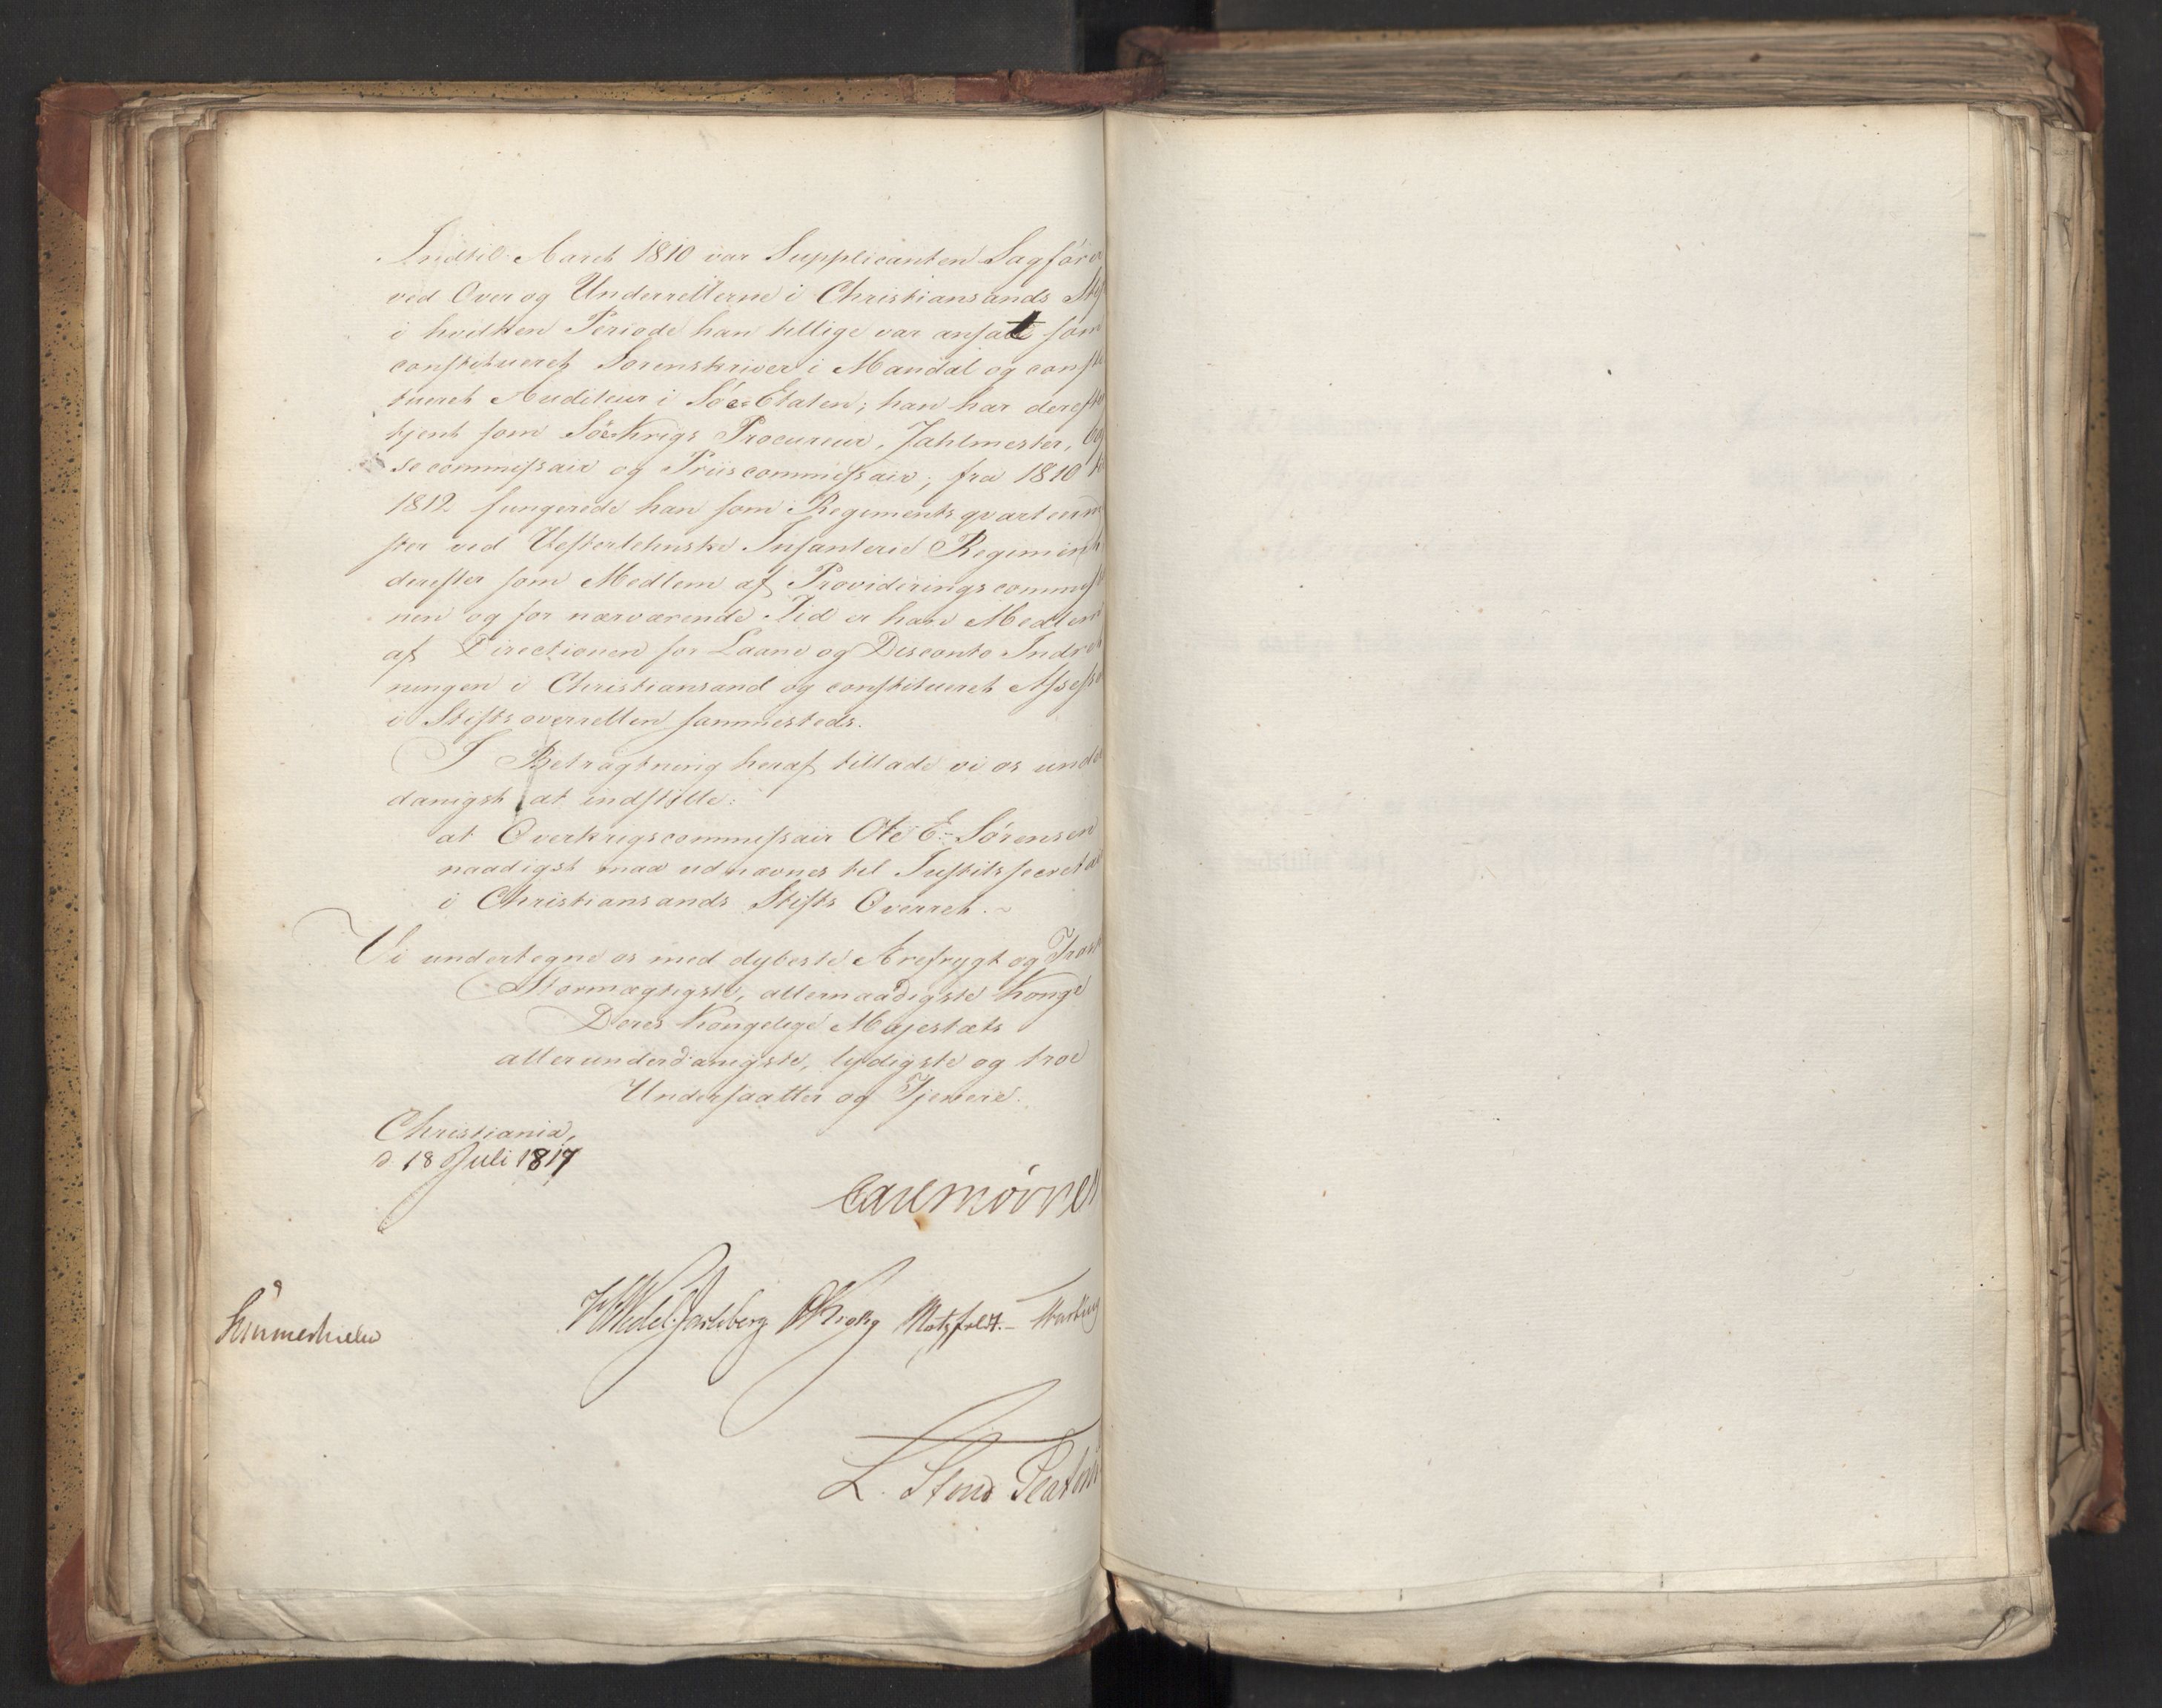 Indtil Aaret 1810 var Supplicanten Sagfører
ved Over og Underretterne i Christiansands Stif
i hvilken Periode han tillige var ansatt som
constitueret Sorenskriver i Mandal og consti
tueret Auditeur i Søe-Etaten; han har derefter
tjent som Søe-Krigs Procureur, Zahlmester,
se commissair og Priiscommissair; fra 1810 til
1812 fungerede han som Regimentsqvarteerme
ster ved Vesterlehnske Infanterie Regiment
derefter som Medlem af Provideringscommissio
nen og for nærværende Tid er han Medlem
af Directionen for Laane og Disconto Indret
ningen i Christiansand og constitueret Assessor
i Stiftsoverretten sammesteds.
I Betragtning heraf tillade vi os under
danigst at indstille:
at Overkrigscommissair Ole E. Sørensen
naadigst maa udnævnes til Justitssecretair
i Christiansands Stifts Overret.
Vi undertegne os med dybeste Ærefrygt og Troe
Stormægtigste, allernaadigste Konge
Deres Kongelige Majestæts
allerunderdanigste, lydigste og troe
Undersaatter og Tjenere.
Christiania,
d. 18 Juli 1817
Carl Mörner
HWedel Jarlsberg Krohg Motzfeldt. 
Sommerhielm
L. Stoud Platou